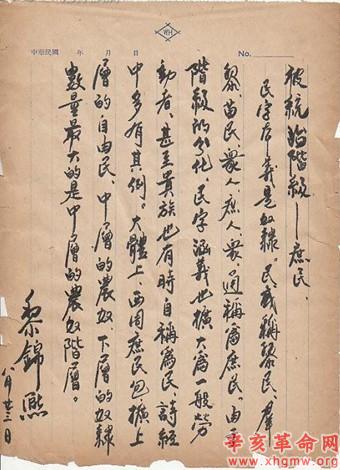 WH
中華民國 年 月 日
No.
被統治階級—庶民、
民字本義是奴隸。民或稱黎民、羣
黎、苗民、眾人、庶人、眾、通稱為庶民。由于
階級的分化、民字涵義也擴大為一般勞
動者、甚至貴族也有時自稱為民、詩經
中多有其例。大體上、西周庶民包擴上
層的自由民、中層的農奴、下層的奴隸
數量最大的是中層的農奴階層。
黎錦熙
八月廿三日
辛亥革命网
www.xhgmw.org